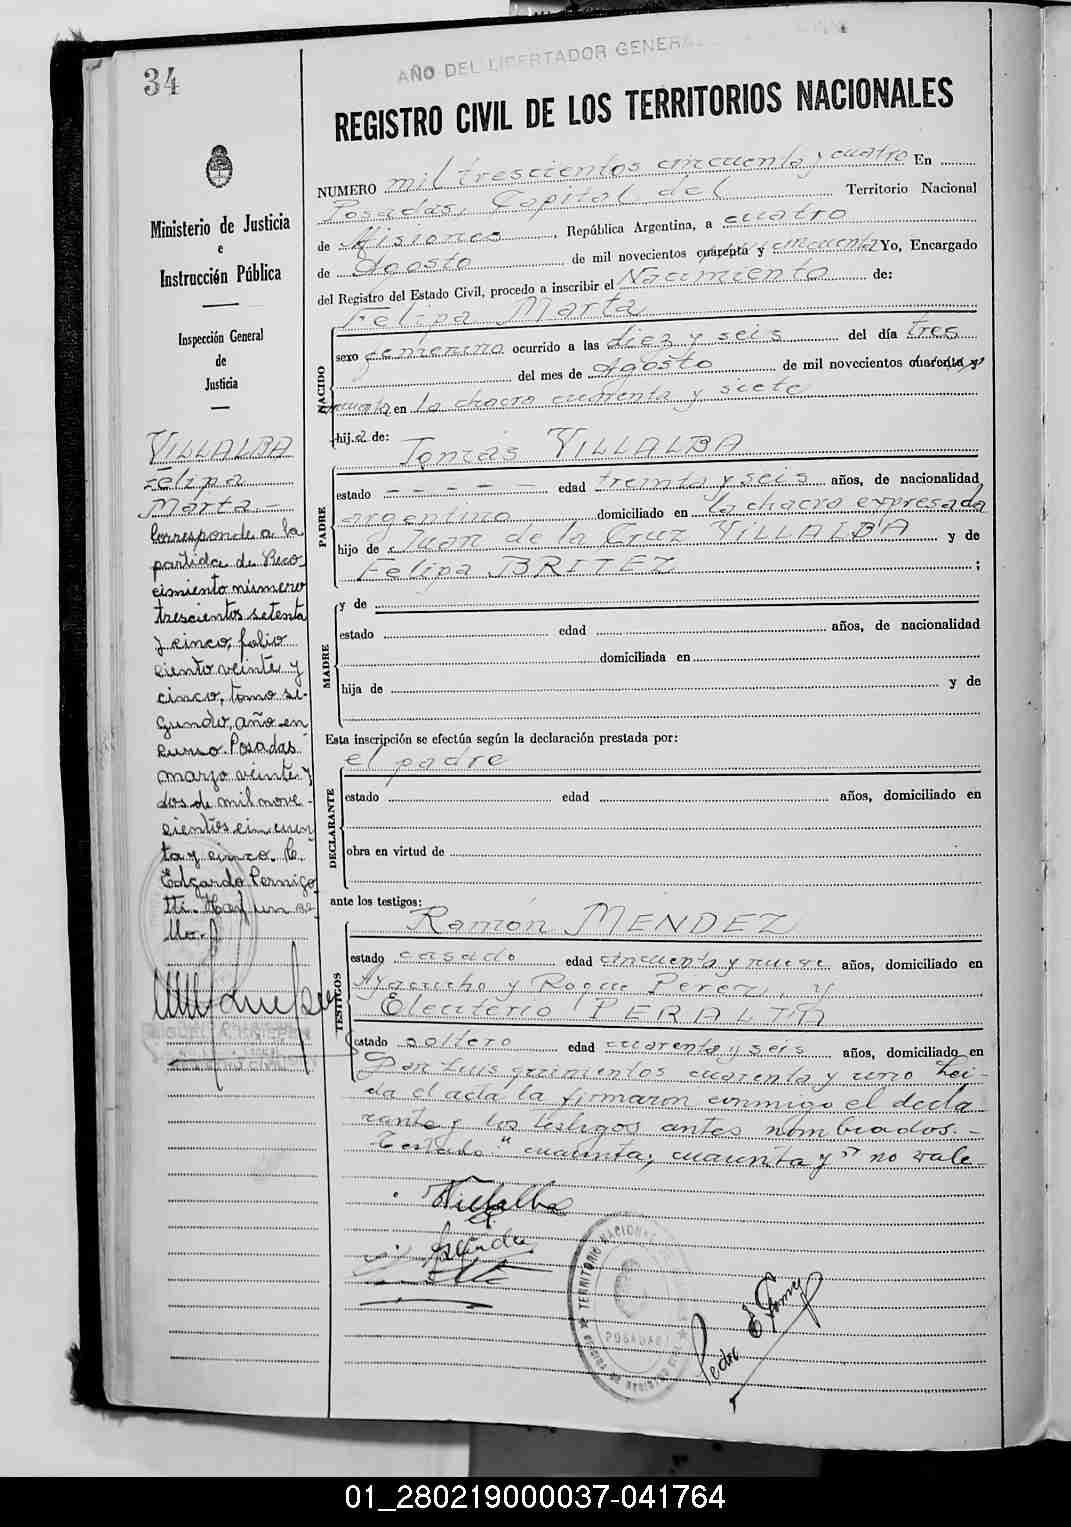 34
AÑO DEL LIBERTADOR GENERAL
REGISTRO CIVIL DE LOS TERRITORIOS NACIONALES
Ministerio de Justicia
e
Instrucción Pública
Inspección General
de
Justicia
VILLALBA
Felipa
Marta -
Corresponde a la
partida de Reco-
cimiento número
trescientos setenta
y cinco, folio
ciento veinte y
cinco, tomo se-
gundo, año en
curso. Posadas
marzo veinte y
dos de mil nove-
cientos cincuen-
ta y cinco. C.
Edgardo Pernigo
tti. Hay un se-
llo.
NUMERO mil trescientos cincuenta y cuatro En
Posadas, Capital del Territorio Nacional
de Misiones, República Argentina, a cuatro
de Agosto de mil novecientos cuarenta y cincuenta Yo, Encargado
del Registro del Estado Civil, procedo a inscribir el Nacimiento de:
NACIDO
Felipa Marta
sexo femenino ocurrido a las diez y seis del día tres
del mes de Agosto de mil novecientos cuarenta y
cincuenta en la chacra cuarenta y siete
hija de:
PADRE
Tomás VILLALBA
estado - - - - - edad treinta y seis años, de nacionalidad
argentino domiciliado en la chacra expresada
hijo de Juan de la Cruz VILLALBA y de
Felipa BRITEZ ;
MADRE
y de
estado edad años, de nacionalidad
domiciliada en
hija de y de
Esta inscripción se efectúa según la declaración prestada por:
el padre
DECLARANTE
estado edad años, domiciliado en
obra en virtud de
ante los testigos:
TESTIGOS
Ramón MENDEZ
estado casado edad cincuenta y nueve años, domiciliado en
Ayacucho y Roque Perez, y
Eleuterio PERALTA
estado soltero edad cuarenta y seis años, domiciliado en
San Luis quinientos cuarenta y uno Leí-
da el acta la firmaron conmigo el decla
rante y los testigos antes nombrados. -
Testado "cuarenta; cuarenta y" no vale
Villalba
TERRITORIO NACIONAL
POSADAS
OFICINA DE REGISTRO CIVIL
Pedro E Gomez
01_280219000037-041764